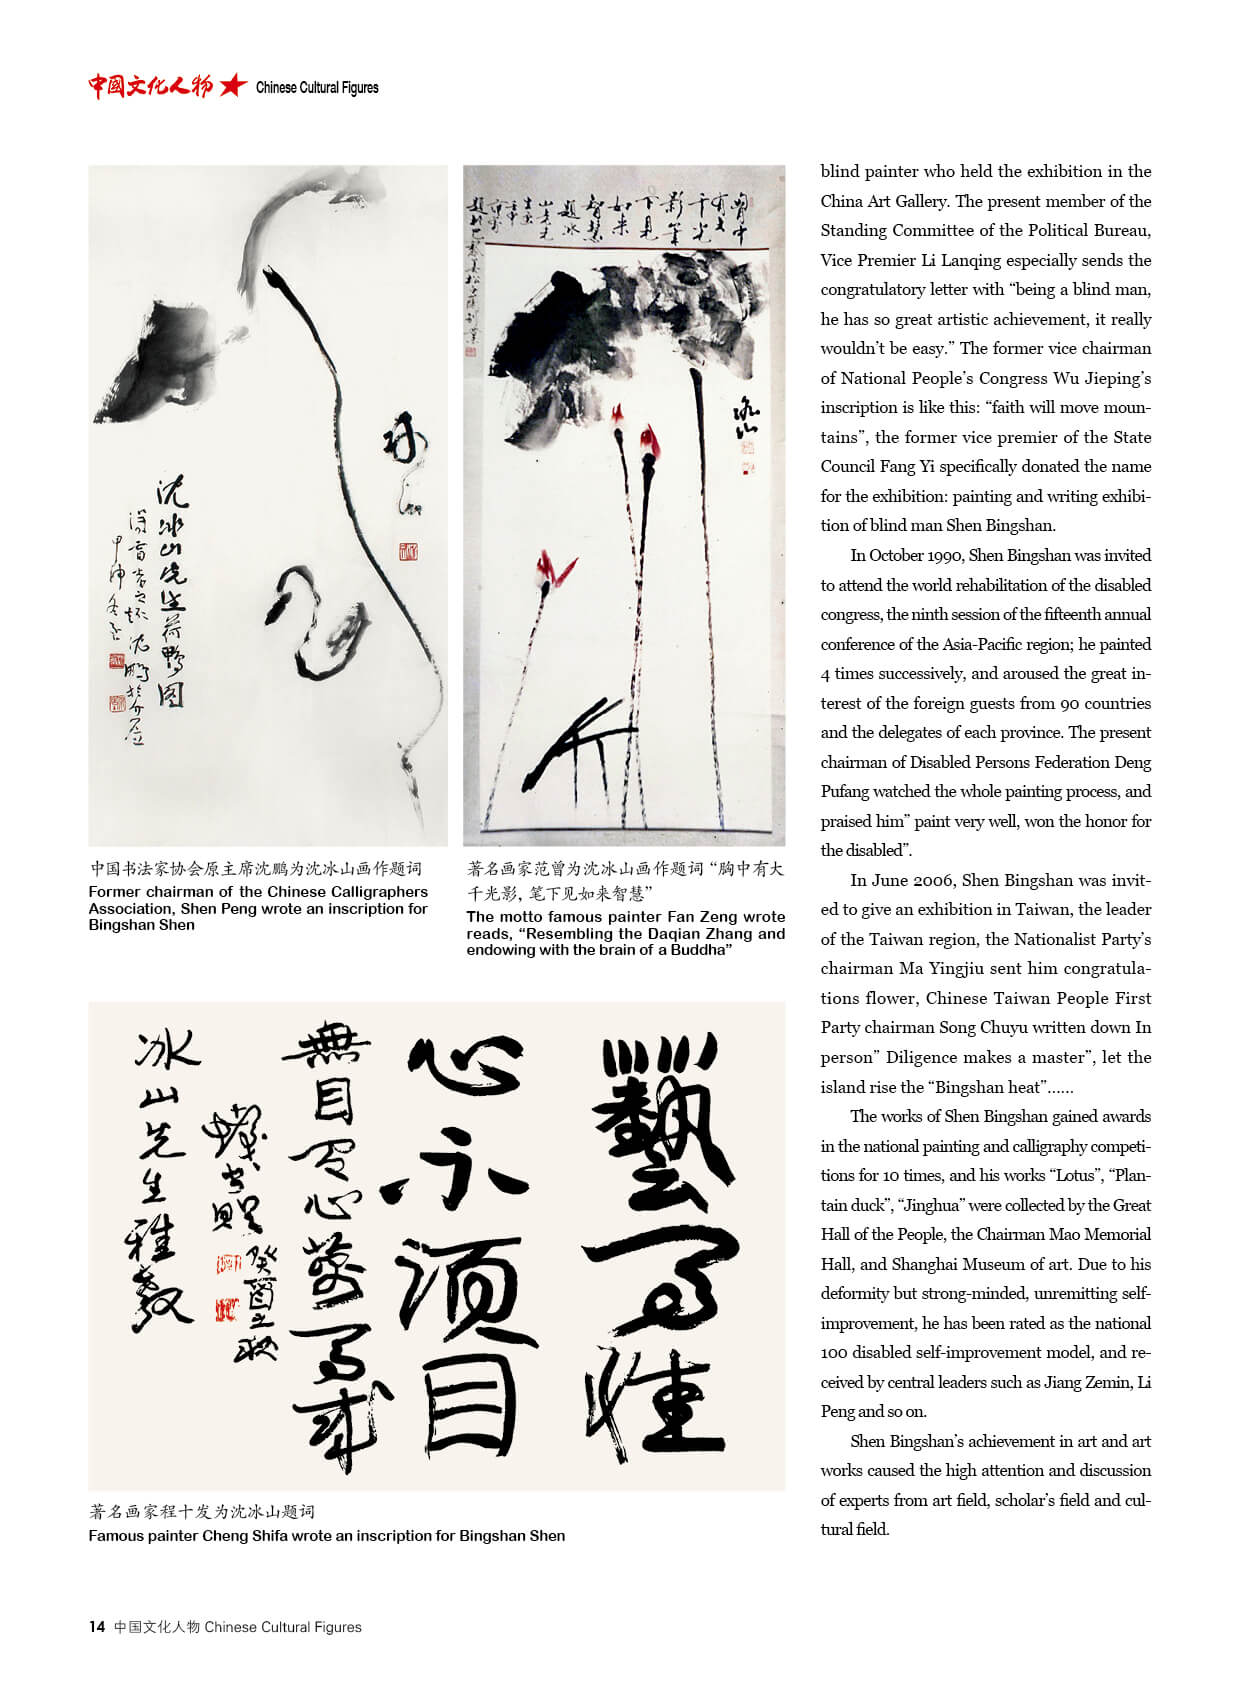 中國文化人物 Chinese Cultural Figures
沈冰山先生荷鸭图
胸中
有大
千光
影笔
下见
如来
智慧
题冰
冰山
中国书法家协会原主席沈鹏为沈冰山画作题词
Former chairman of the Chinese Calligraphers
Association, Shen Peng wrote an inscription for
Bingshan Shen
著名画家范曾为沈冰山画作题词“胸中有大
千光影，笔下见如来智慧”
The motto famous painter Fan Zeng wrote
reads, “Resembling the Daqian Zhang and
endowing with the brain of a Buddha”
心不须目
無目有心萬事成
冰山先生雅教
癸酉之秋
著名画家程十发为沈冰山题词
Famous painter Cheng Shifa wrote an inscription for Bingshan Shen
blind painter who held the exhibition in the
China Art Gallery. The present member of the
Standing Committee of the Political Bureau,
Vice Premier Li Lanqing especially sends the
congratulatory letter with “being a blind man,
he has so great artistic achievement, it really
wouldn’t be easy.” The former vice chairman
of National People’s Congress Wu Jieping’s
inscription is like this: “faith will move moun-
tains”, the former vice premier of the State
Council Fang Yi specifically donated the name
for the exhibition: painting and writing exhibi-
tion of blind man Shen Bingshan.
In October 1990, Shen Bingshan was invited
to attend the world rehabilitation of the disabled
congress, the ninth session of the fifteenth annual
conference of the Asia-Pacific region; he painted
4 times successively, and aroused the great in-
terest of the foreign guests from 90 countries
and the delegates of each province. The present
chairman of Disabled Persons Federation Deng
Pufang watched the whole painting process, and
praised him” paint very well, won the honor for
the disabled”.
In June 2006, Shen Bingshan was invit-
ed to give an exhibition in Taiwan, the leader
of the Taiwan region, the Nationalist Party’s
chairman Ma Yingjiu sent him congratula-
tions flower, Chinese Taiwan People First
Party chairman Song Chuyu written down In
person” Diligence makes a master”, let the
island rise the “Bingshan heat”......
The works of Shen Bingshan gained awards
in the national painting and calligraphy competi-
tions for 10 times, and his works “Lotus”, “Plan-
tain duck”, “Jinghua” were collected by the Great
Hall of the People, the Chairman Mao Memorial
Hall, and Shanghai Museum of art. Due to his
deformity but strong-minded, unremitting self-
improvement, he has been rated as the national
100 disabled self-improvement model, and re-
ceived by central leaders such as Jiang Zemin, Li
Peng and so on.
Shen Bingshan’s achievement in art and art
works caused the high attention and discussion
of experts from art field, scholar’s field and cul-
tural field.
14 中国文化人物 Chinese Cultural Figures